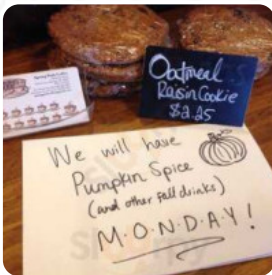 Oatmeal
Raisin Cookie
$2.25
We will have
Pumpkin Spice
(and other fall drinks)
M.O.N.D.A.Y!